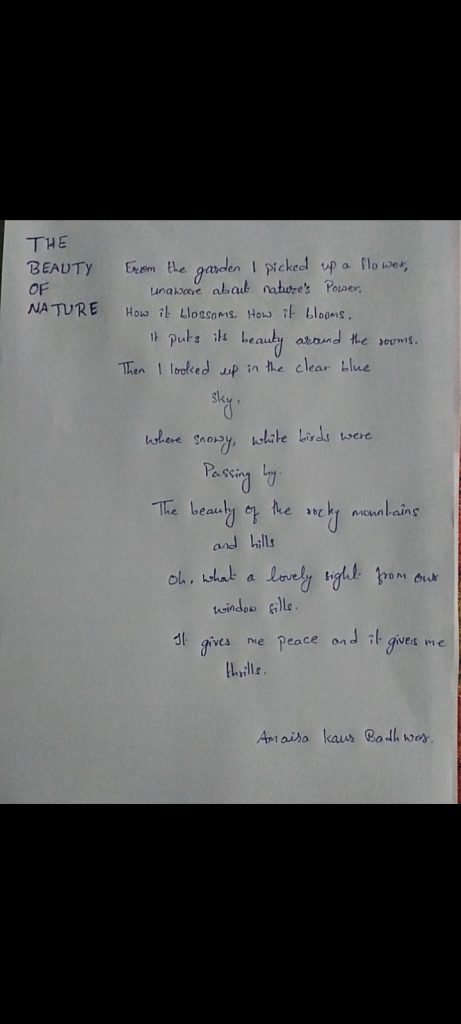 THE
BEAUTY
OF
NATURE
From the garden I picked up a flower,
unaware about nature's Power.
How it blossoms. How it blooms.
It puts its beauty around the rooms.
Then I looked up in the clear blue
sky,
where snowy, white birds were
Passing by.
The beauty of the rocky mountains
and hills
Oh, what a lovely sight from our
window sills.
It gives me peace and it gives me
thrills.
Amaira Kaur Badhwar.